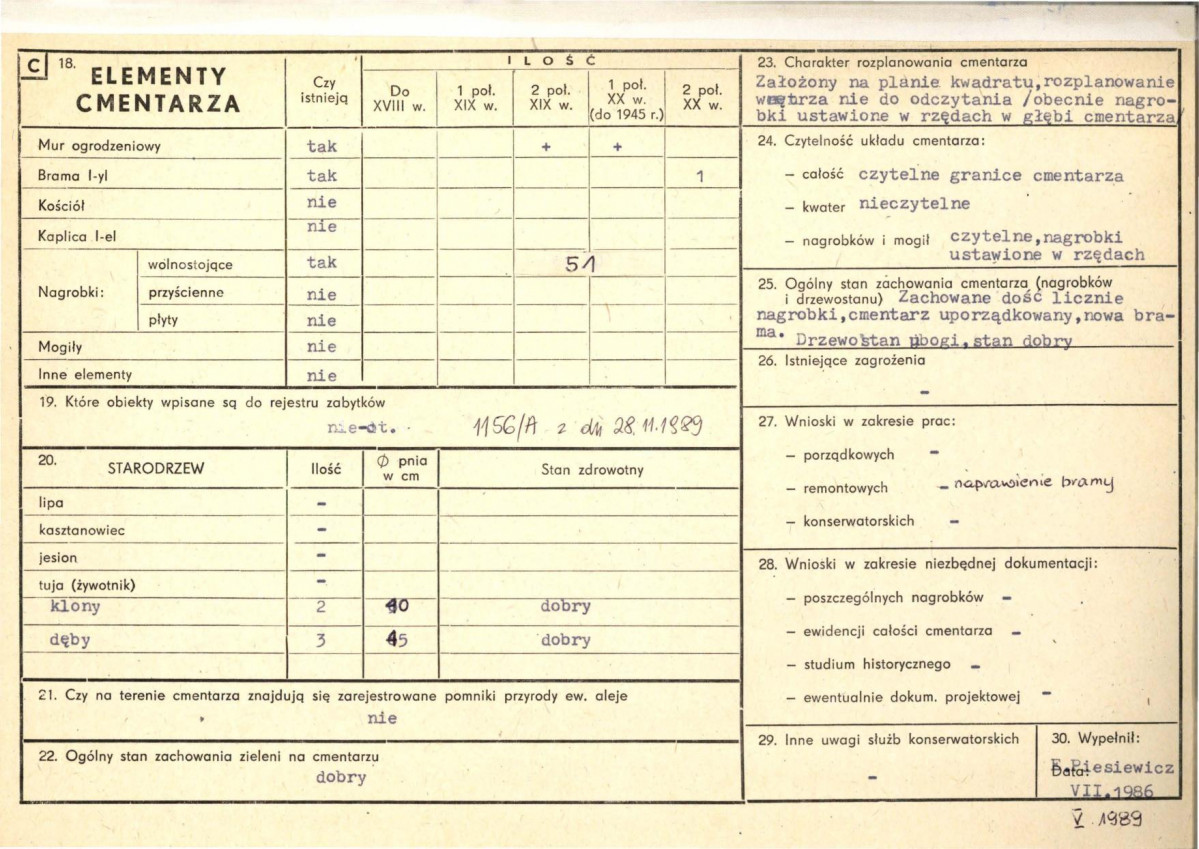 C 18. ELEMENTY CMENTARZA
Czy istnieją
ILOŚĆ
Do XVIII w.
1 poł. XIX w.
2 poł. XIX w.
1 poł. XX w. (do 1945 r.)
2 poł. XX w.
Mur ogrodzeniowy tak + +
Brama I-yl tak 1
Kościół nie
Kaplica I-el nie
Nagrobki:
wolnostojące tak 51
przyścienne nie
płyty nie
Mogiły nie
Inne elementy nie
19. Które obiekty wpisane są do rejestru zabytków
1156/A z dn 28.11.1989
20. STARODRZEW Ilość Ø pnia w cm Stan zdrowotny
lipa -
kasztanowiec -
jesion -
tuja (żywotnik) -
klony 2 40 dobry
dęby 3 45 dobry
21. Czy na terenie cmentarza znajdują się zarejestrowane pomniki przyrody ew. aleje
nie
22. Ogólny stan zachowania zieleni na cmentarzu
dobry
23. Charakter rozplanowania cmentarza
Założony na planie kwadratu,rozplanowanie
wnętrza nie do odczytania /obecnie nagro-
bki ustawione w rzędach w głębi cmentarza/
24. Czytelność układu cmentarza:
– całość czytelne granice cmentarza
– kwater nieczytelne
– nagrobków i mogił czytelne,nagrobki
ustawione w rzędach
25. Ogólny stan zachowania cmentarza (nagrobków
i drzewostanu) Zachowane dość licznie
nagrobki,cmentarz uporządkowany,nowa bra-
ma. Drzewostan ubogi,stan dobry
26. Istniejące zagrożenia
-
27. Wnioski w zakresie prac:
– porządkowych -
– remontowych - naprawienie bramy
– konserwatorskich -
28. Wnioski w zakresie niezbędnej dokumentacji:
– poszczególnych nagrobków -
– ewidencji całości cmentarza -
– studium historycznego -
– ewentualnie dokum. projektowej -
29. Inne uwagi służb konserwatorskich
-
30. Wypełnił:
Piesiewicz
Data:
VII.1986
V 1989